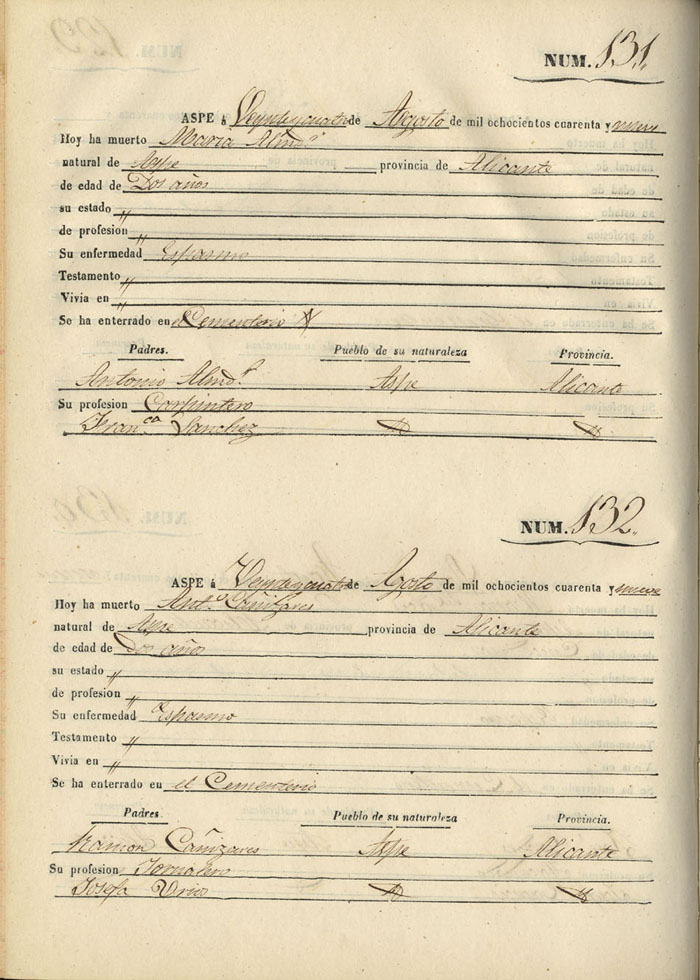 NUM. 131.
ASPE á Veyntycuatro de Agosto de mil ochocientos cuarenta y nueve
Hoy ha muerto Maria Almd.ª
natural de Aspe provincia de Alicante
de edad de Dos años
su estado "
de profesion "
Su enfermedad Espasmo
Testamento "
Vivia en "
Se ha enterrado en el Cementerio
Padres. Pueblo de su naturaleza Provincia.
Antonio Almd.ª Aspe Alicante
Su profesion Carpintero
Fran.ca Sanchez
NUM. 132.
ASPE á Veyntycuatro de Agosto de mil ochocientos cuarenta y nueve
Hoy ha muerto Ant.º Cañizares
natural de Aspe provincia de Alicante
de edad de Dos años
su estado "
de profesion "
Su enfermedad Espasmo
Testamento "
Vivia en "
Se ha enterrado en el Cementerio
Padres. Pueblo de su naturaleza Provincia.
Ramon Cañizares Aspe Alicante
Su profesion Jornalero
Josefa